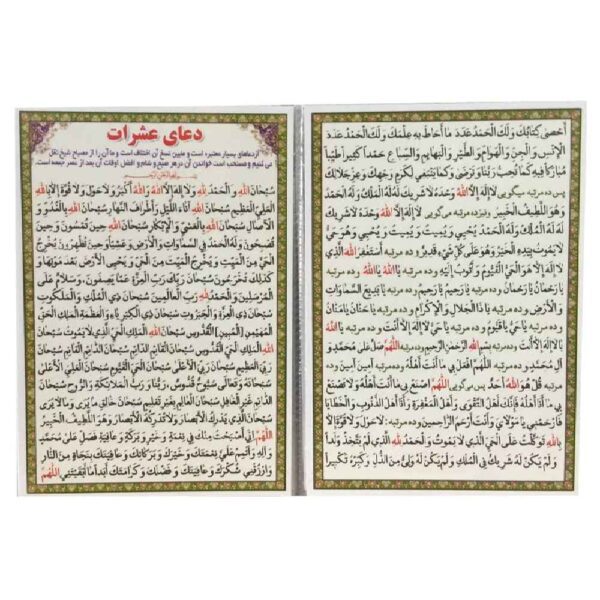 دعای عشرات
از دعاهای بسیار معتبره است و مابین نسخ آن اختلاف است و ما آن را از مصباح شیخ نقل
می کنیم و مستحب است خواندن آن در هر صبح و شام و افضل اوقات آن بعد از عصر جمعه است.
سُبْحَانَ اللهِ وَ الْحَمْدُ لِلهِ وَ لَا اِلهَ اِلَّا اللهُ وَ اللهُ اَكْبَرُ وَ لَا حَوْلَ وَ لَا قُوَّةَ اِلَّا بِاللهِ
الْعَلِيِّ الْعَظِيمِ سُبْحَانَ اللهِ آنَاءَ اللَّيْلِ وَ اَطْرَافَ النَّهَارِ سُبْحَانَ اللهِ بِالْغُدُوِّ وَ
الْآصَالِ سُبْحَانَ اللهِ بِالْعَشِيِّ وَ الْاِبْكَارِ سُبْحَانَ اللهِ حِينَ تُمْسُونَ وَ حِينَ
تُصْبِحُونَ وَ لَهُ الْحَمْدُ فِي السَّمَاوَاتِ وَ الْاَرْضِ وَ عَشِيًّا وَ حِينَ تُظْهِرُونَ يُخْرِجُ
الْحَيَّ مِنَ الْمَيِّتِ وَ يُخْرِجُ الْمَيِّتَ مِنَ الْحَيِّ وَ يُحْيِي الْاَرْضَ بَعْدَ مَوْتِهَا وَ
كَذلِكَ تُخْرَجُونَ سُبْحَانَ رَبِّكَ رَبِّ الْعِزَّةِ عَمَّا يَصِفُونَ، وَ سَلَامٌ عَلَى
الْمُرْسَلِينَ وَ الْحَمْدُ لِلهِ رَبِّ الْعَالَمِينَ سُبْحَانَ ذِي الْمُلْكِ وَ الْمَلَكُوتِ
سُبْحَانَ ذِي الْعِزَّةِ وَ الْجَبَرُوتِ سُبْحَانَ ذِي الْكِبْرِيَاءِ وَ الْعَظَمَةِ الْمَلِكِ الْحَقِّ
الْمُهَيْمِنِ [الْمُبِينِ] الْقُدُّوسِ سُبْحَانَ اللهِ الْمَلِكِ الْحَيِّ الَّذِي لَا يَمُوتُ سُبْحَانَ
اللهِ الْمَلِكِ الْحَيِّ الْقُدُّوسِ سُبْحَانَ الْقَائِمِ الدَّائِمِ سُبْحَانَ الدَّائِمِ الْقَائِمِ سُبْحَانَ
رَبِّيَ الْعَظِيمِ سُبْحَانَ رَبِّيَ الْاَعْلَى سُبْحَانَ الْحَيِّ الْقَيُّومِ سُبْحَانَ الْعَلِيِّ الْاَعْلَى
سُبْحَانَهُ وَ تَعَالَى سُبُّوحٌ قُدُّوسٌ رَبُّنَا وَ رَبُّ الْمَلَائِكَةِ وَ الرُّوحِ سُبْحَانَ
الدَّائِمِ غَيْرِ الْغَافِلِ سُبْحَانَ الْعَالِمِ بِغَيْرِ تَعْلِيمٍ سُبْحَانَ خَالِقِ مَا يُرَى وَ مَا لَا يُرَى
سُبْحَانَ الَّذِي يُدْرِكُ الْاَبْصَارَ وَ لَا تُدْرِكُهُ الْاَبْصَارُ وَ هُوَ اللَّطِيفُ الْخَبِيرُ
اَللّهُمَّ اِنِّي اَصْبَحْتُ مِنْكَ فِي نِعْمَةٍ وَ خَيْرٍ وَ بَرَكَةٍ وَ عَافِيَةٍ فَصَلِّ عَلَى مُحَمَّدٍ
وَ آلِهِ وَ اَتْمِمْ عَلَيَّ نِعْمَتَكَ وَ خَيْرَكَ وَ بَرَكَاتِكَ وَ عَافِيَتَكَ بِنَجَاةٍ مِنَ النَّارِ
وَ ارْزُقْنِي شُكْرَكَ وَ عَافِيَتَكَ وَ فَضْلَكَ وَ كَرَامَتَكَ اَبَداً مَا اَبْقَيْتَنِي اَللّهُمَّ
اَحْصَى كِتَابُكَ وَ لَكَ الْحَمْدُ عَدَدَ مَا اَحَاطَ بِهِ عِلْمُكَ وَ لَكَ الْحَمْدُ عَدَدَ
الْاِنْسِ وَ الْجِنِّ وَ الْهَوَامِّ وَ الطَّيْرِ وَ الْبَهَائِمِ وَ السِّبَاعِ حَمْداً كَثِيراً طَيِّباً
مُبَارَكاً فِيهِ كَمَا تُحِبُّ رَبَّنَا وَ تَرْضَى وَ كَمَا يَنْبَغِي لِكَرَمِ وَجْهِكَ وَ عِزِّ جَلَالِكَ
پس ده مرتبه می گویی لَا اِلهَ اِلَّا اللهُ وَحْدَهُ لَا شَرِيكَ لَهُ لَهُ الْمُلْكُ وَ لَهُ الْحَمْدُ
وَ هُوَ اللَّطِيفُ الْخَبِيرُ و نیز ده مرتبه میگویی لَا اِلهَ اِلَّا اللهُ وَحْدَهُ لَا شَرِيكَ
لَهُ لَهُ الْمُلْكُ وَ لَهُ الْحَمْدُ يُحْيِي وَ يُمِيتُ وَ يُمِيتُ وَ يُحْيِي وَ هُوَ حَيٌّ
لَا يَمُوتُ بِيَدِهِ الْخَيْرُ وَ هُوَ عَلَى كُلِّ شَيْءٍ قَدِيرٌ و ده مرتبه اَسْتَغْفِرُ اللهَ الَّذِي
لَا اِلهَ اِلَّا هُوَ الْحَيُّ الْقَيُّومُ وَ اَتُوبُ اِلَيْهِ و ده مرتبه يَا اَللهُ يَا اَللهُ و ده مرتبه
يَا رَحْمَانُ يَا رَحْمَانُ و ده مرتبه يَا رَحِيمُ يَا رَحِيمُ و ده مرتبه يَا بَدِيعَ السَّمَاوَاتِ
وَ الْاَرْضِ و ده مرتبه يَا ذَا الْجَلَالِ وَ الْاِكْرَامِ و ده مرتبه يَا حَنَّانُ يَا مَنَّانُ
و ده مرتبه يَا حَيُّ يَا قَيُّومُ و ده مرتبه يَا حَيُّ لَا اِلهَ اِلَّا اَنْتَ و ده مرتبه يَا اَللهُ
يَا لَا اِلهَ اِلَّا اَنْتَ و ده مرتبه بِسْمِ اللهِ الرَّحْمنِ الرَّحِيمِ و ده مرتبه اَللّهُمَّ صَلِّ عَلَى مُحَمَّدٍ وَ
آلِ مُحَمَّدٍ و ده مرتبه اَللّهُمَّ افْعَلْ بِي مَا اَنْتَ اَهْلُهُ و ده مرتبه آمِينَ آمِينَ و ده
مرتبه قُلْ هُوَ اللهُ اَحَدٌ پس می گویی اَللّهُمَّ اصْنَعْ بِي مَا اَنْتَ اَهْلُهُ وَ لَا تَصْنَعْ
بِي مَا اَنَا اَهْلُهُ فَاِنَّكَ اَهْلُ التَّقْوَى وَ اَهْلُ الْمَغْفِرَةِ وَ اَنَا اَهْلُ الذُّنُوبِ وَ الْخَطَايَا
فَارْحَمْنِي يَا مَوْلَايَ وَ اَنْتَ اَرْحَمُ الرَّاحِمِينَ و ده مرتبه: لَا حَوْلَ وَ لَا قُوَّةَ اِلَّا
بِاللهِ تَوَكَّلْتُ عَلَى الْحَيِّ الَّذِي لَا يَمُوتُ وَ الْحَمْدُ لِلهِ الَّذِي لَمْ يَتَّخِذْ وَلَداً
وَ لَمْ يَكُنْ لَهُ شَرِيكٌ فِي الْمُلْكِ وَ لَمْ يَكُنْ لَهُ وَلِيٌّ مِنَ الذُّلِّ وَ كَبِّرْهُ تَكْبِيراً